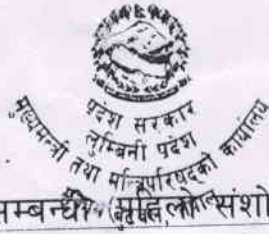 प्रदेश सरकार
लुम्बिनी प्रदेश
मुख्यमन्त्री तथा मन्त्रिपरिषद्को कार्यालय
सम्बन्धी